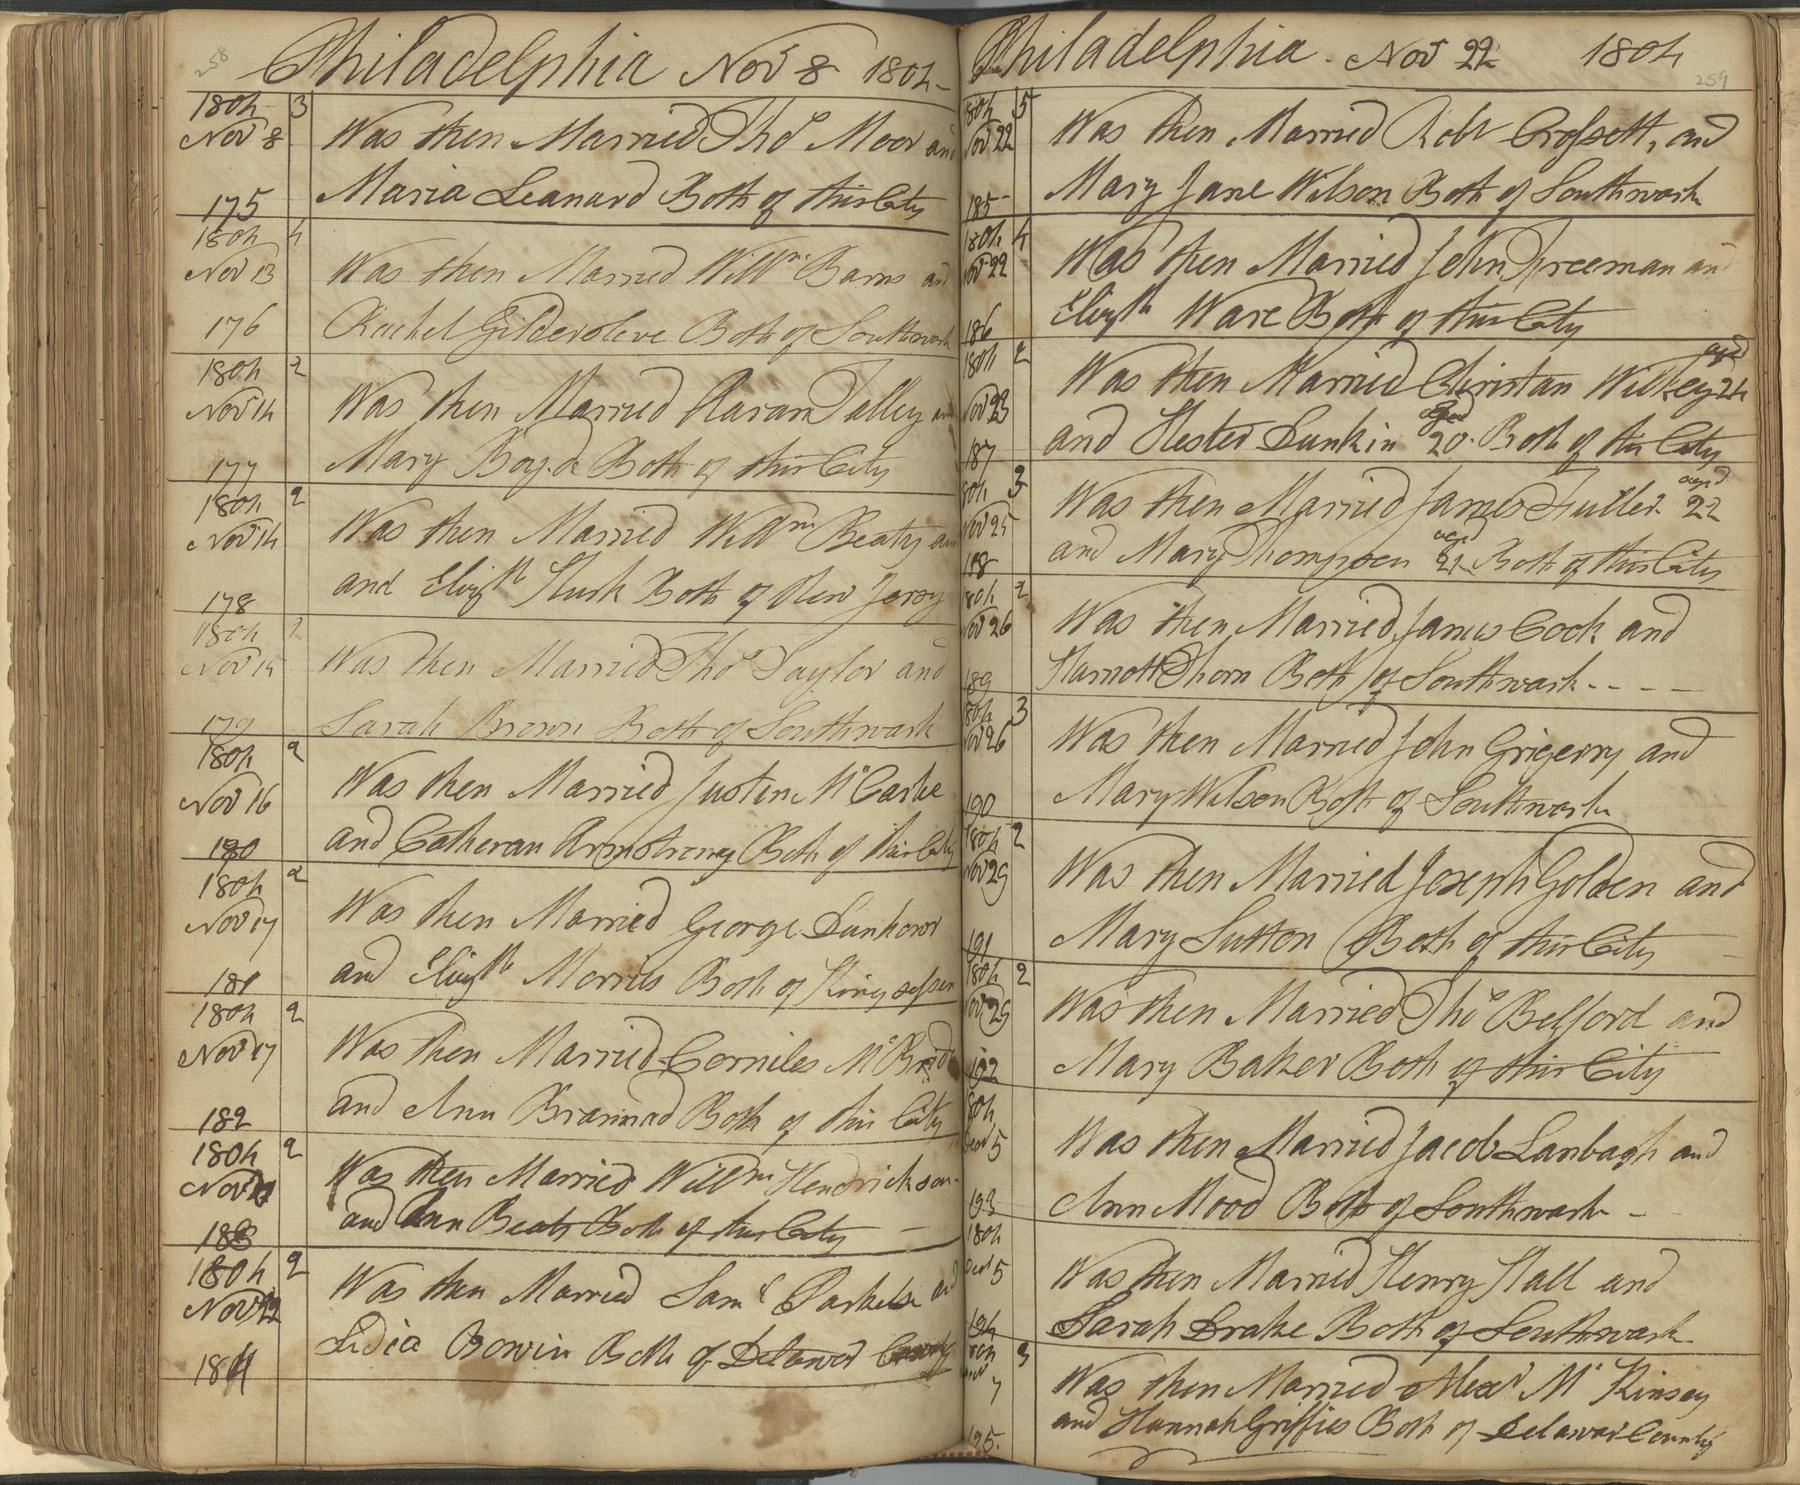 258
Philadelphia Nov 8 1804
1804 3
Nov 8 Was then Married Tho Moor and
175 Maria Leanard Both of this City
1804 4
Nov 13 Was then Married Willm Barns and
176 Rachel Gildersleve Both of Southwark
1804 2
Nov 14 Was then Married Talley and
177 Mary Boyd Both of this City
1804 2
Nov 14 Was then Married Willm Beaty an
178 and Elizth Both of New Jersy
1804 2
Nov 15 Was then Married Tho Taylor and
179 Sarah Brown Both of Southwark
1804 2
Nov 16 Was then Married Justin Mc Carke
180 and Catheran Armstrong Both of this City
1804 2
Nov 17 Was then Married George Dunhowr
181 and Elizth Morris Both of Kingsessen
1804 2
Nov 17 Was then Married Corniles Mc Bride
182 and Ann Brannad Both of this City
1804 2
Nov Was then Married Willm Hendrickson
183 and Ann Beaty Both of this City
1804 2
Nov 22 Was then Married Saml and
184 Lidia Bowin Both of Delawar County
Philadelphia Nov 22 1804
259
1804 5
Nov 22 Was then Married Robt Crossett, and
185 Mary Jane Wilson Both of Southwark
1804 4
Nov 22 Was then Married John Freeman an
186 Elizth Ware Both of this City
1804 2 aged
Nov 23 Was then Married Christan Wilkey 24
aged
187 and Hester Dunkin 20 Both of this City
1804 3 aged
Nov 25 Was then Married James Fuller 22
aged
188 and Mary Thompson 21 Both of this City
1804 2
Nov 26 Was then Married James Cook and
189 Harriott Thorn Both of Southwark
1804 3
Nov 26 Was then Married John Grigerry and
190 Mary Wilson Both of Southwark
1804 2
Nov 29 Was then Married Joseph Golden and
191 Mary Sutton Both of this City
1804 2
Nov 29 Was then Married Tho Belford and
192 Mary Baker Both of this City
1804
Decr 5 Was then Married Jacob Lanbagh and
193 Ann Mood Both of Southwark
1804
Decr 5 Was then Married Henry Hall and
194 Sarah Drake Both of Southwark
1804 3
Decr 7 Was then Married Alexr Mc Kinsey
195 and Hannah Griffies Both of Delawar County